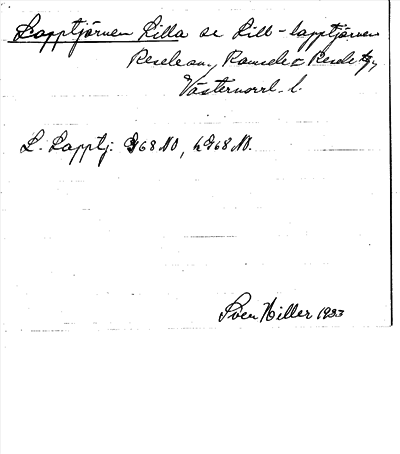 Lapptjärnen Lilla se Lill-lapptjärnen
Resele sn., Ramsele o Resele tg,
Västernorrl. l.
L. Lapptj. 968 NO, h 968 NO.
Sven Hiller 1933